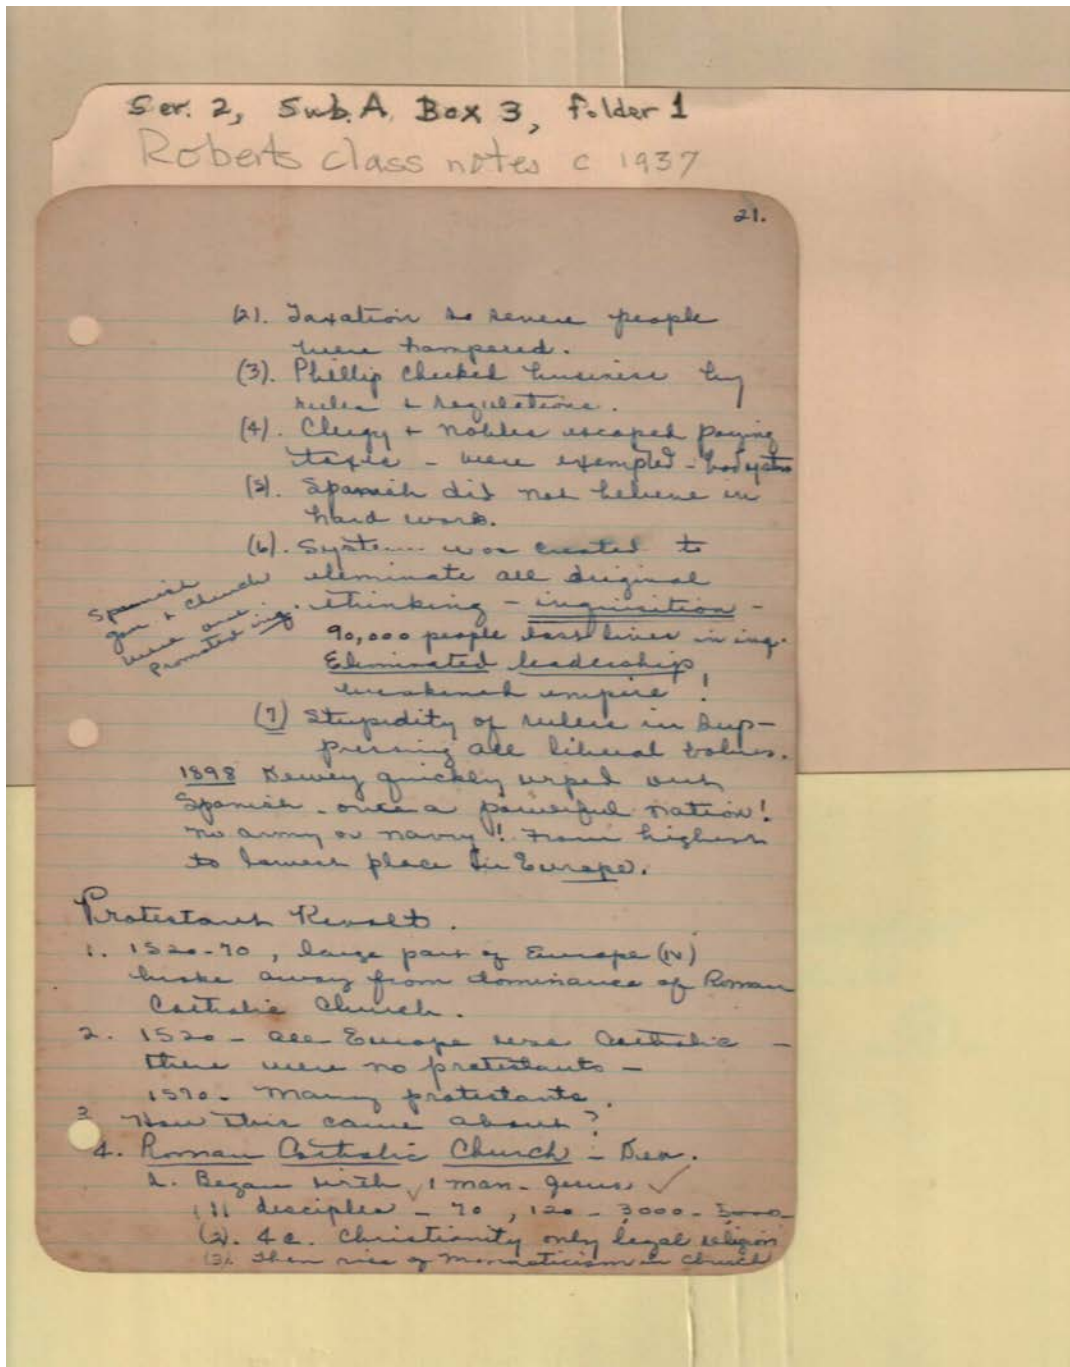 Ser. 2, Sub. A, Box 3, folder 1
Roberts class notes c 1937
21.
(2). Taxation so severe people
were hampered.
(3). Phillip checked business by
rules & regulations.
(4). Clergy + nobles escaped paying
taxes - were exempted -
(5). Spanish did not believe in
hard work.
(6). System was created to
eleminate all original
thinking - inquisition -
Spanish
gov + Church
were one
promoted inq.
90,000 people lost lives in inq.
Eleminated leadership
weakened empire!
(7) Stupidity of rulers in sup-
pressing all liberal values.
1898 Dewey quickly wiped out
Spanish - once a powerful nation!
no army or navy! From highest
to lowest place in Europe.
Protestant Revolt.
1. 1520-70, large part of Europe (N)
broke away from dominance of Roman
Catholic Church.
2. 1520 - all Europe was Catholic -
there were no protestants -
1570 - Many protestants.
3 How this came about?
4. Roman Catholic Church - Dev.
1. Began with 1 man - Jesus ✓
(1) disciples - 70, 120 - 3000 - 5000 -
(2). 4 c. Christianity only legal religion
(3). Then rise of monasticism in Church